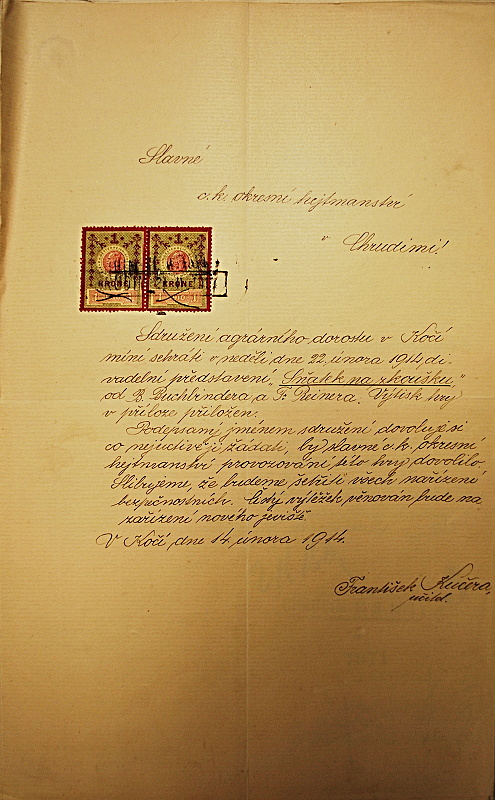 Slavné
c. k. okresní hejtmanství
v
Chrudimi!
1 1
KRONE KRONE
Sdružení agrárního dorostu v Kočí
míní sehráti v neděli dne 22. února 1914, di-
vadelní představení „Sňatek na zkoušku“
od B. Buchbindera a F. Reinera. Výtisk hry
v příloze přiložen.
Podepsaný jménem sdružení dovoluje si
co nejuctivěji žádati, by slavné c. k. okresní
hejtmanství provozování této hry dovolilo.
Slibujeme, že budeme šetřiti všech nařízení
bezpečnostních. Čistý výtěžek věnován bude na
zařízení nového jeviště.
V Kočí, dne 14. února 1914.
František Kučera,
učitel.